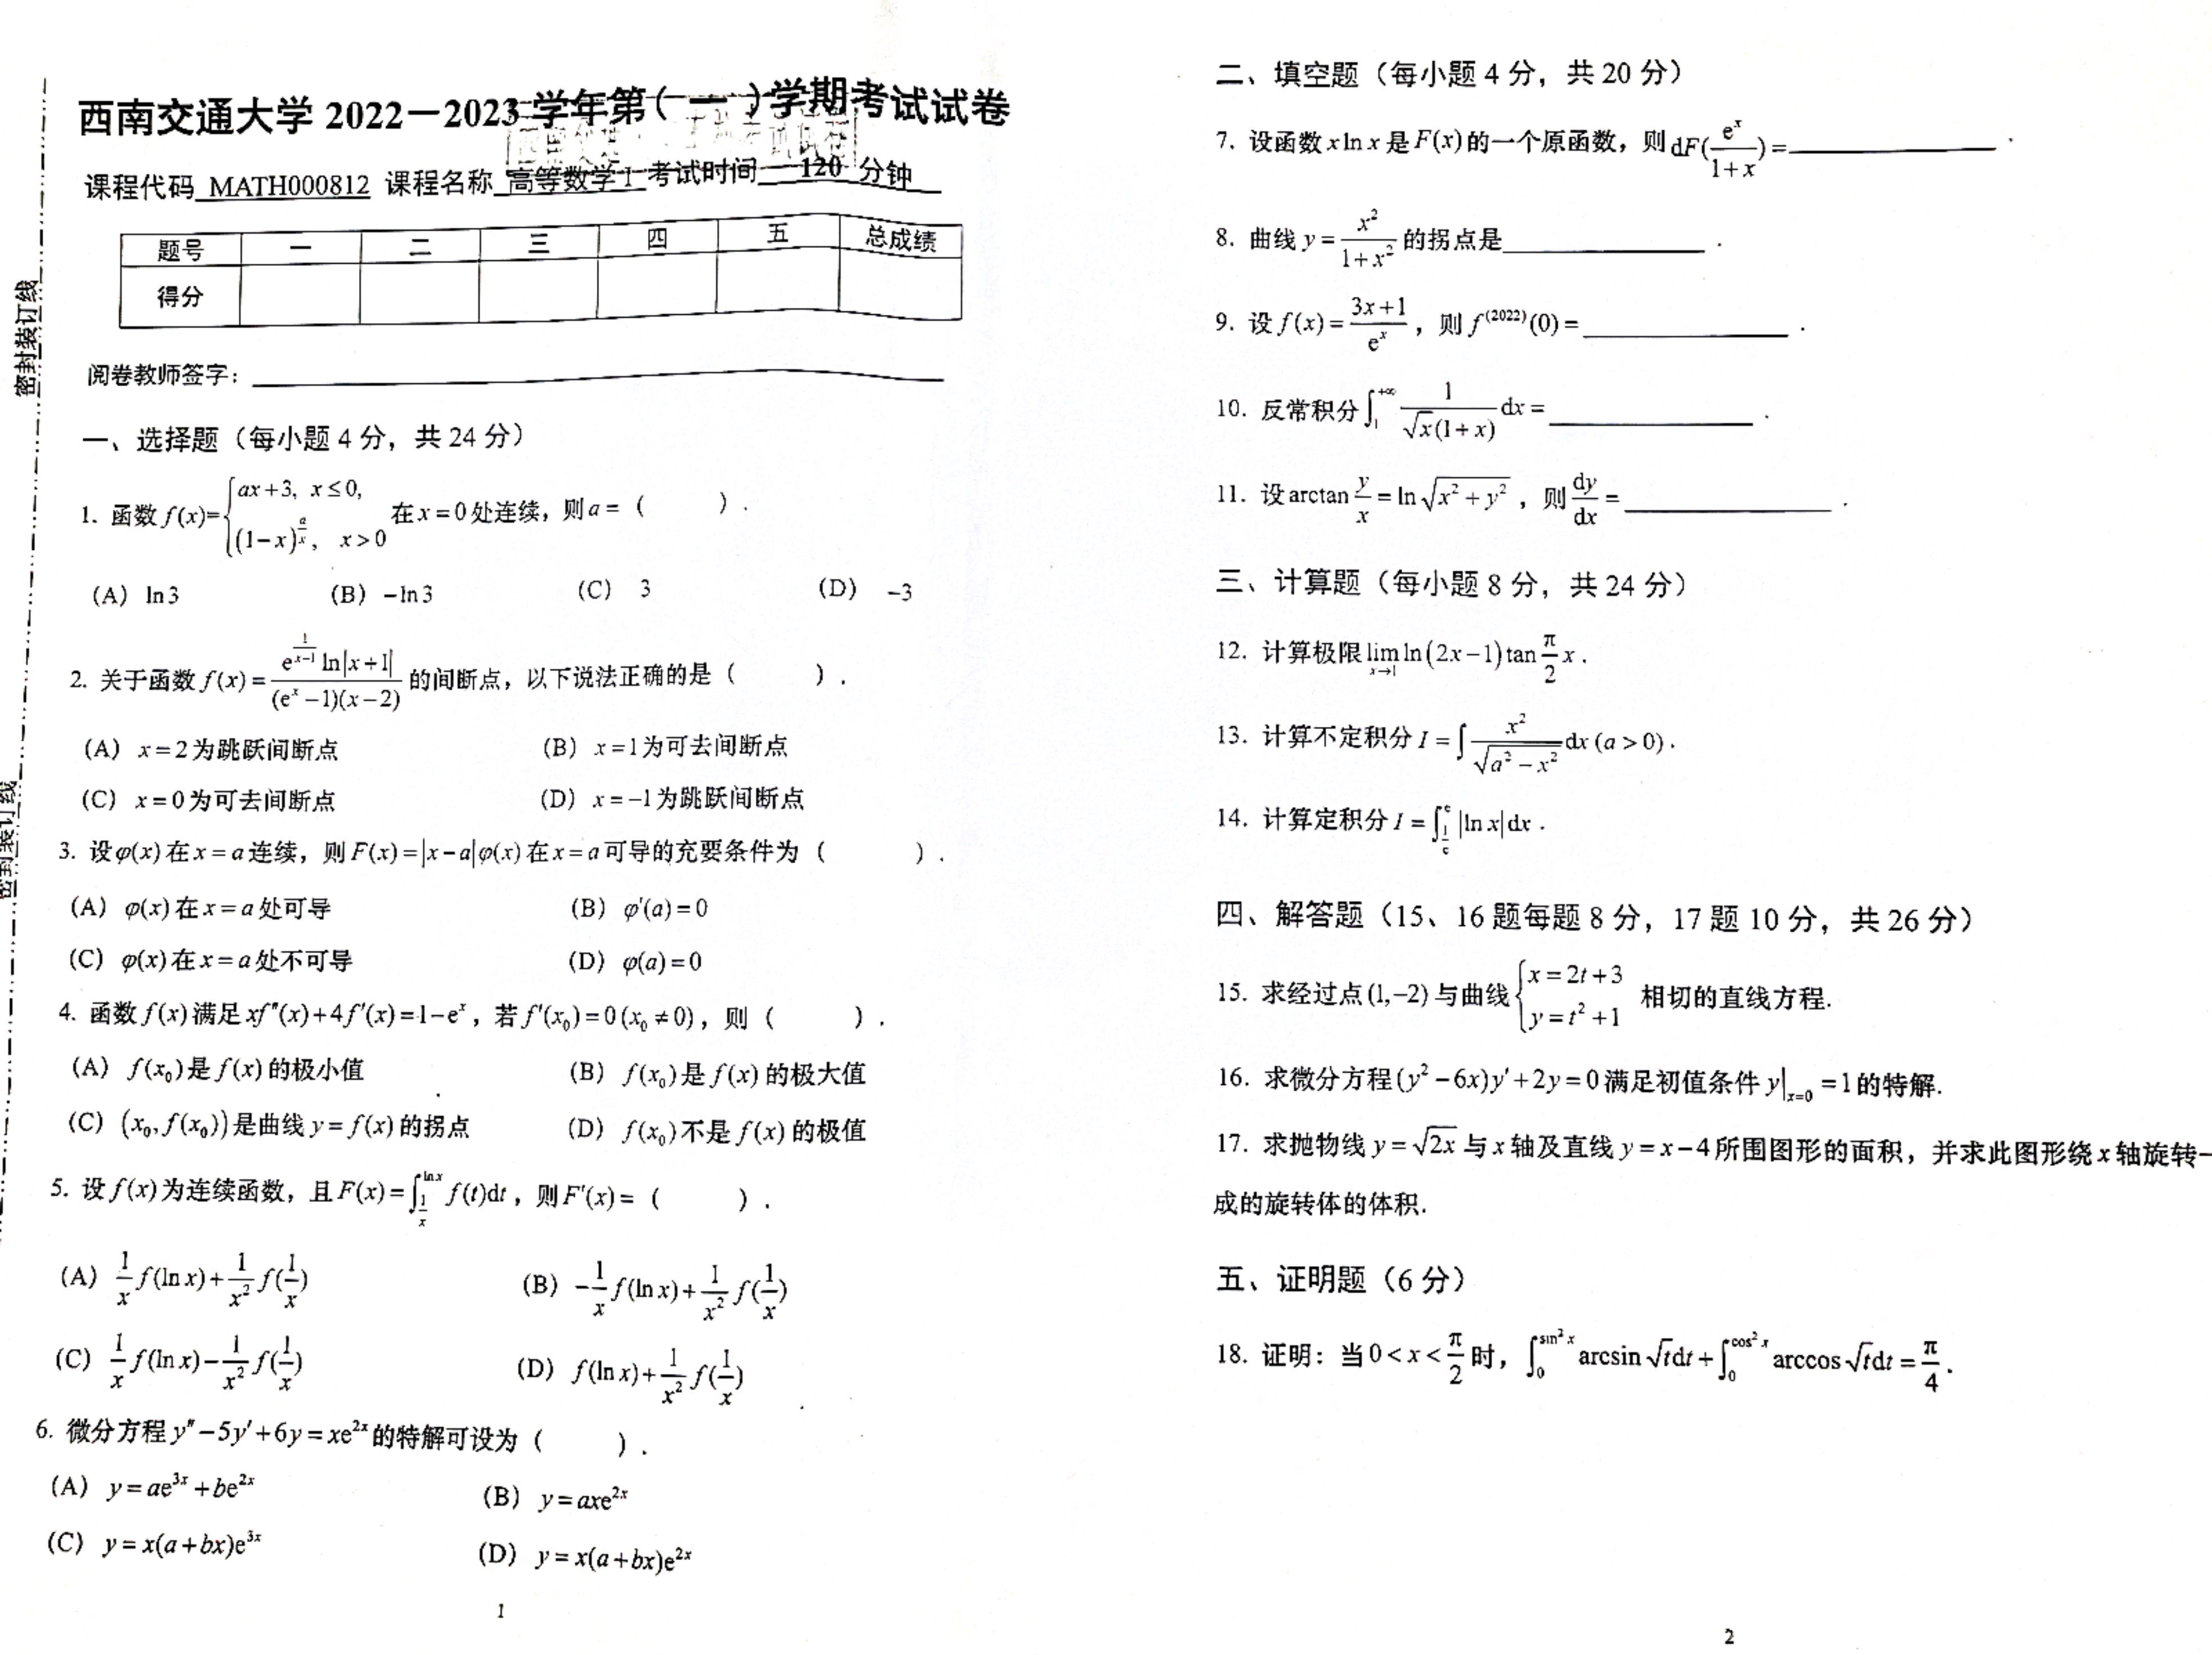 西南交通大学 2022－2023 学年第( 一 )学期考试试卷
课程代码 MATH000812 课程名称 高等数学 I 考试时间 120 分钟
题号 一 二 三 四 五 总成绩
得分
阅卷教师签字：
密封装订线
密封装订线
一、选择题（每小题 4 分，共 24 分）
1. 函数 f(x)={ax+3, x≤0, (1−x)^{a/x}, x>0 在 x=0 处连续，则 a=（ ）.
(A) ln3 (B) −ln3 (C) 3 (D) −3
2. 关于函数 f(x)=e^{1/(x−1)} ln|x+1| / ((e^x−1)(x−2)) 的间断点，以下说法正确的是（ ）.
(A) x=2 为跳跃间断点 (B) x=1 为可去间断点
(C) x=0 为可去间断点 (D) x=−1 为跳跃间断点
3. 设 φ(x) 在 x=a 连续，则 F(x)=|x−a|φ(x) 在 x=a 可导的充要条件为（ ）.
(A) φ(x) 在 x=a 处可导 (B) φ′(a)=0
(C) φ(x) 在 x=a 处不可导 (D) φ(a)=0
4. 函数 f(x) 满足 xf″(x)+4f′(x)=1−e^x，若 f′(x₀)=0 (x₀≠0)，则（ ）.
(A) f(x₀) 是 f(x) 的极小值 (B) f(x₀) 是 f(x) 的极大值
(C) (x₀, f(x₀)) 是曲线 y=f(x) 的拐点 (D) f(x₀) 不是 f(x) 的极值
5. 设 f(x) 为连续函数，且 F(x)=∫_{1/x}^{ln x} f(t)dt，则 F′(x)=（ ）.
(A) 1/x f(ln x)+1/x² f(1/x) (B) −1/x f(ln x)+1/x² f(1/x)
(C) 1/x f(ln x)−1/x² f(1/x) (D) f(ln x)+1/x² f(1/x)
6. 微分方程 y″−5y′+6y=xe^{2x} 的特解可设为（ ）.
(A) y=ae^{3x}+be^{2x} (B) y=axe^{2x}
(C) y=x(a+bx)e^{3x} (D) y=x(a+bx)e^{2x}
1
二、填空题（每小题 4 分，共 20 分）
7. 设函数 x ln x 是 F(x) 的一个原函数，则 dF(e^x/(1+x))=________.
8. 曲线 y=x²/(1+x²) 的拐点是________.
9. 设 f(x)=(3x+1)/e^x，则 f^{(2022)}(0)=________.
10. 反常积分 ∫_1^{+∞} 1/(√x(1+x)) dx=________.
11. 设 arctan y/x = ln √(x²+y²)，则 dy/dx=________.
三、计算题（每小题 8 分，共 24 分）
12. 计算极限 lim_{x→1} ln(2x−1)tan π/2 x.
13. 计算不定积分 I=∫ x²/√(a²−x²) dx (a>0).
14. 计算定积分 I=∫_{1/e}^{e} |ln x|dx.
四、解答题（15、16 题每题 8 分，17 题 10 分，共 26 分）
15. 求经过点 (1,−2) 与曲线 {x=2t+3 y=t²+1 相切的直线方程.
16. 求微分方程 (y²−6x)y′+2y=0 满足初值条件 y|_{x=0}=1 的特解.
17. 求抛物线 y=√(2x) 与 x 轴及直线 y=x−4 所围图形的面积，并求此图形绕 x 轴旋转
成的旋转体的体积.
五、证明题（6 分）
18. 证明：当 0<x<π/2 时，∫_0^{sin² x} arcsin √t dt+∫_0^{cos² x} arccos √t dt=π/4.
2